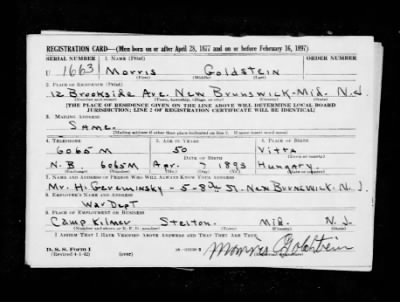 REGISTRATION CARD—(Men born on or after April 28, 1877 and on or before February 16, 1897)
SERIAL NUMBER 1. NAME (Print) ORDER NUMBER
U 1663 Morris Goldstein
(First) (Middle) (Last)
2. PLACE OF RESIDENCE (Print)
12 Brookside Ave. New Brunswick-Mid. N.J.
(Number and street) (Town, township, village, or city) (County) (State)
[THE PLACE OF RESIDENCE GIVEN ON THE LINE ABOVE WILL DETERMINE LOCAL BOARD
JURISDICTION; LINE 2 OF REGISTRATION CERTIFICATE WILL BE IDENTICAL]
3. MAILING ADDRESS
Same.
[Mailing address if other than place indicated on line 2. If same insert word same]
4. TELEPHONE 5. AGE IN YEARS 6. PLACE OF BIRTH
6065M 50 Nitra
DATE OF BIRTH
N.B. 6065M Apr. 7 1893 Hungary.
7. NAME AND ADDRESS OF PERSON WHO WILL ALWAYS KNOW YOUR ADDRESS
Mr. H. - 5-8th St. New Brunswick, N.J.
8. EMPLOYER'S NAME AND ADDRESS
War Dept
9. PLACE OF EMPLOYMENT OR BUSINESS
Camp Kilmer Stelton. Mid. N.J.
(Number and street or R. F. D. number) (Town) (County) (State)
I AFFIRM THAT I HAVE VERIFIED ABOVE ANSWERS AND THAT THEY ARE TRUE.
D. S. S. Form 1
(Revised 4-1-42) (over) Morris Goldstein